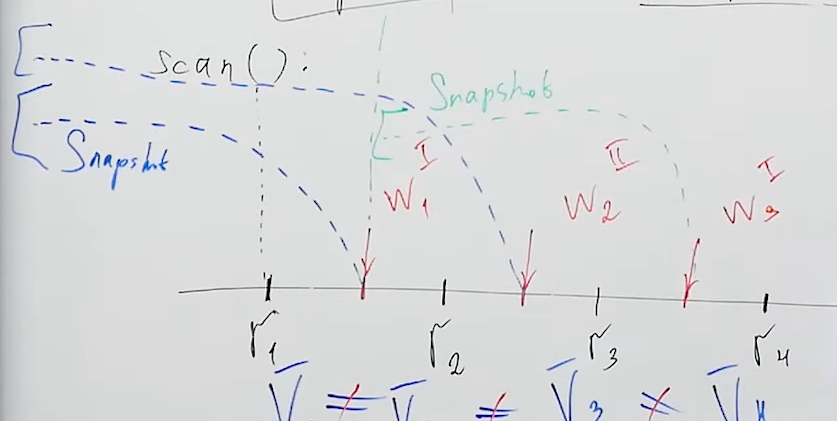 scan():
Snapshot
Snapshot
I II I
W1 W2 W3
r1 r2 r3 r4
V ≠ V ≠ V3 ≠ V4